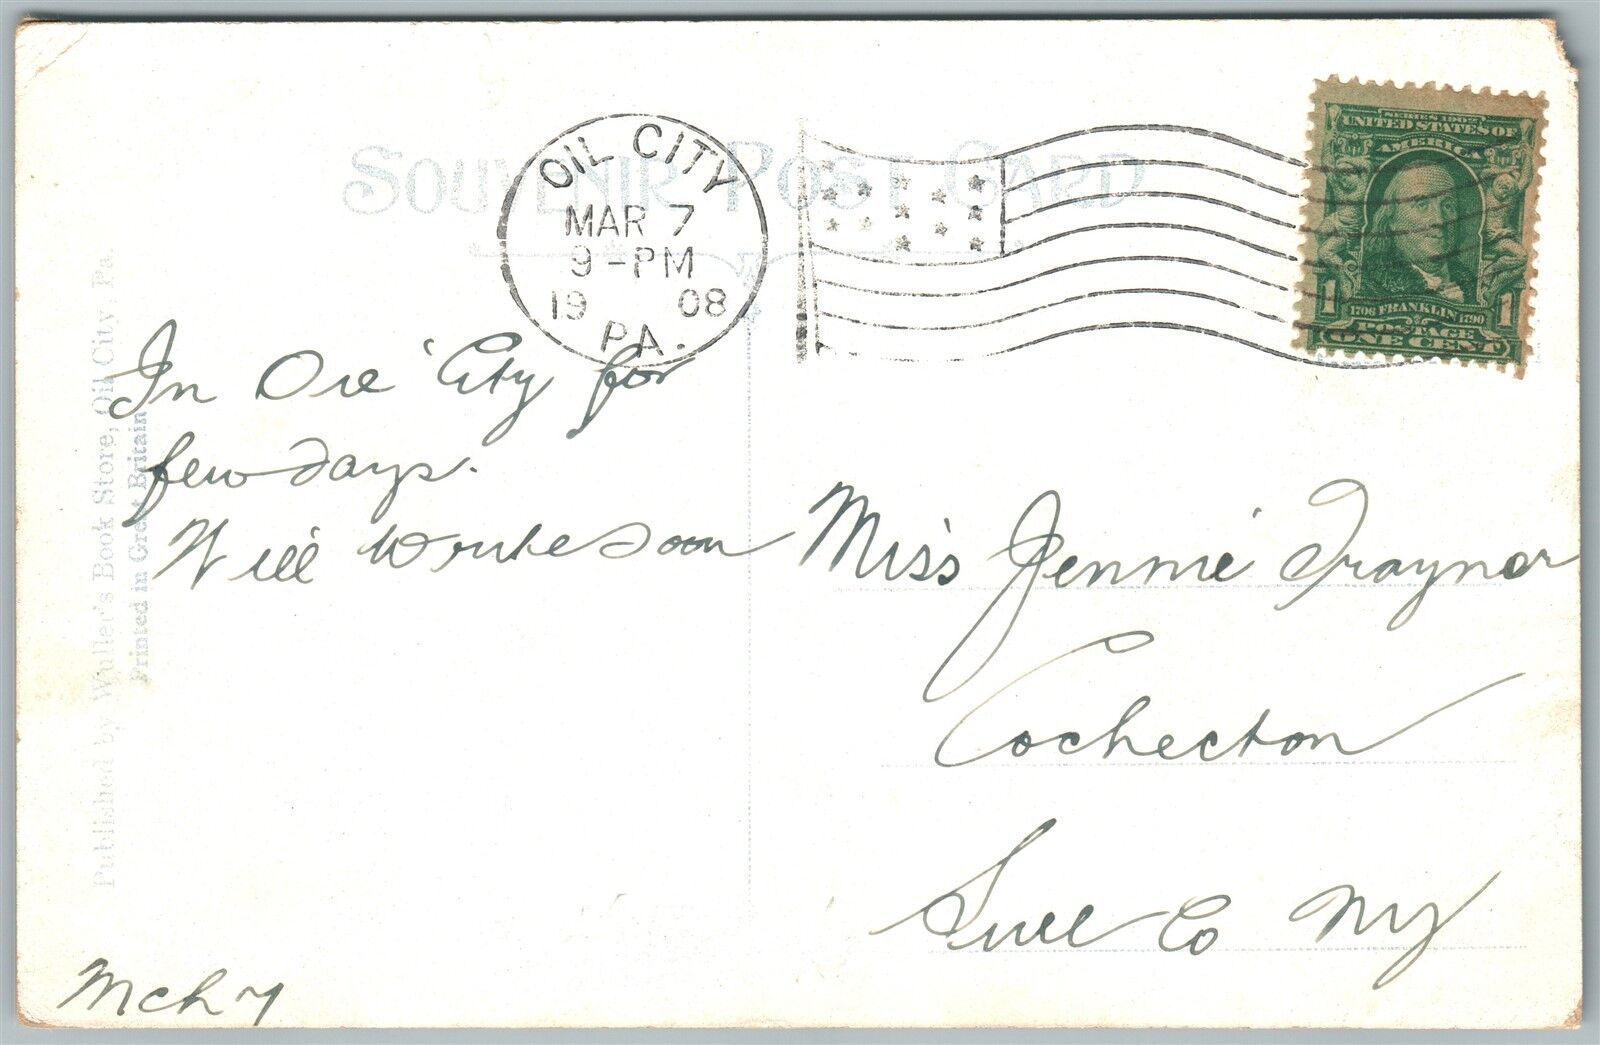 SOUVENIR POST CARD
OIL CITY
MAR 7
9-PM
1908
PA.
SERIES 1902
UNITED STATES OF
AMERICA
1 1
1706 FRANKLIN 1790
POSTAGE
ONE CENT
Published by Wuller's Book Store, Oil City, Pa.
Printed in Great Britain
In Oil City for
few days.
Will write soon
Mch 7
Miss Jennie Traynor
Cochecton
Sull Co NY